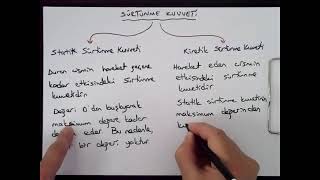 SÜRTÜNME KUVVETİ
Statik Sürtünme Kuvveti
Duran cismin harekete geçene
kadar etkisindeki sürtünme
kuvvetidir.
Değeri 0'dan başlayarak
maksimum değere kadar
eder. Bu nedenle,
bir değeri yoktur.
Kinetik Sürtünme Kuvveti
Hareket eden cismin
etkisindeki sürtünme
kuvvetidir.
Statik sürtünme kuvvetinin
maksimum değerinden